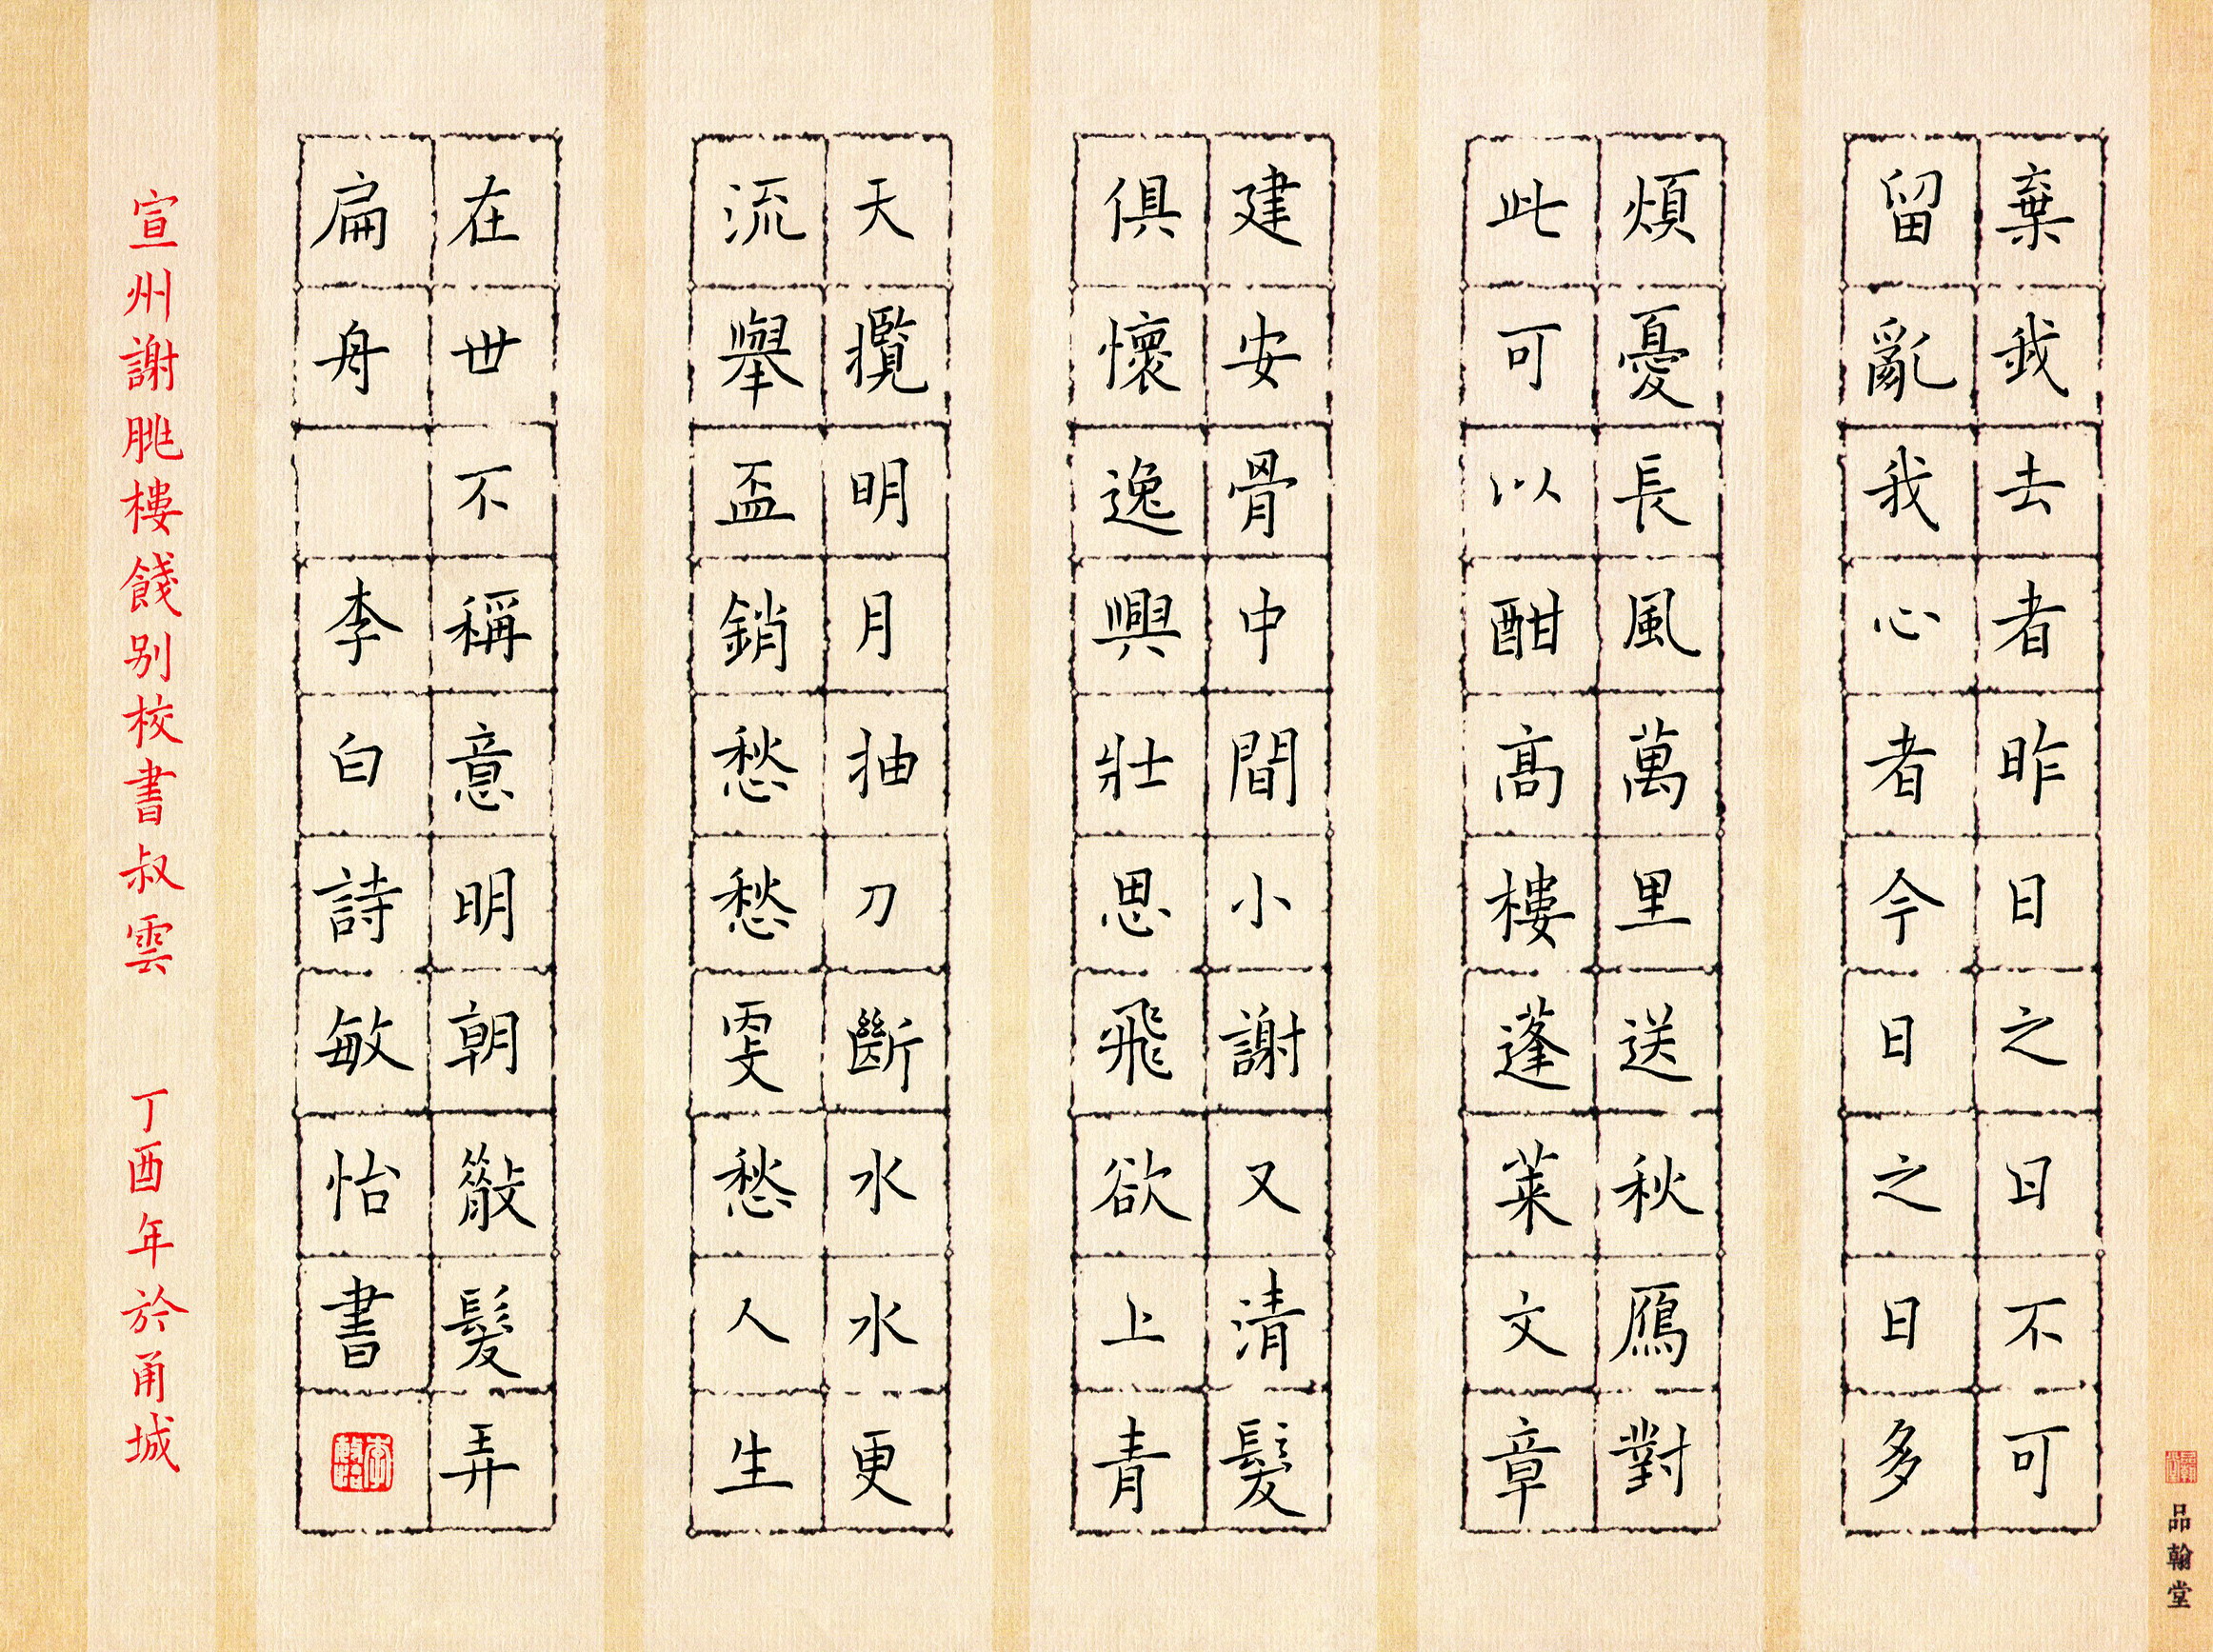 棄我去者昨日之日不可
留亂我心者今日之日多
煩憂長風萬里送秋鴈對
此可以酣高樓蓬萊文章
建安骨中間小謝又清髮
俱懷逸興壯思飛欲上青
天攬明月抽刀斷水水更
流舉盃銷愁愁雯愁人生
在世不稱意明朝散髮弄
扁舟 李白詩敏怡書
宣州謝朓樓餞别校書叔雲 丁酉年於甬城
品翰堂